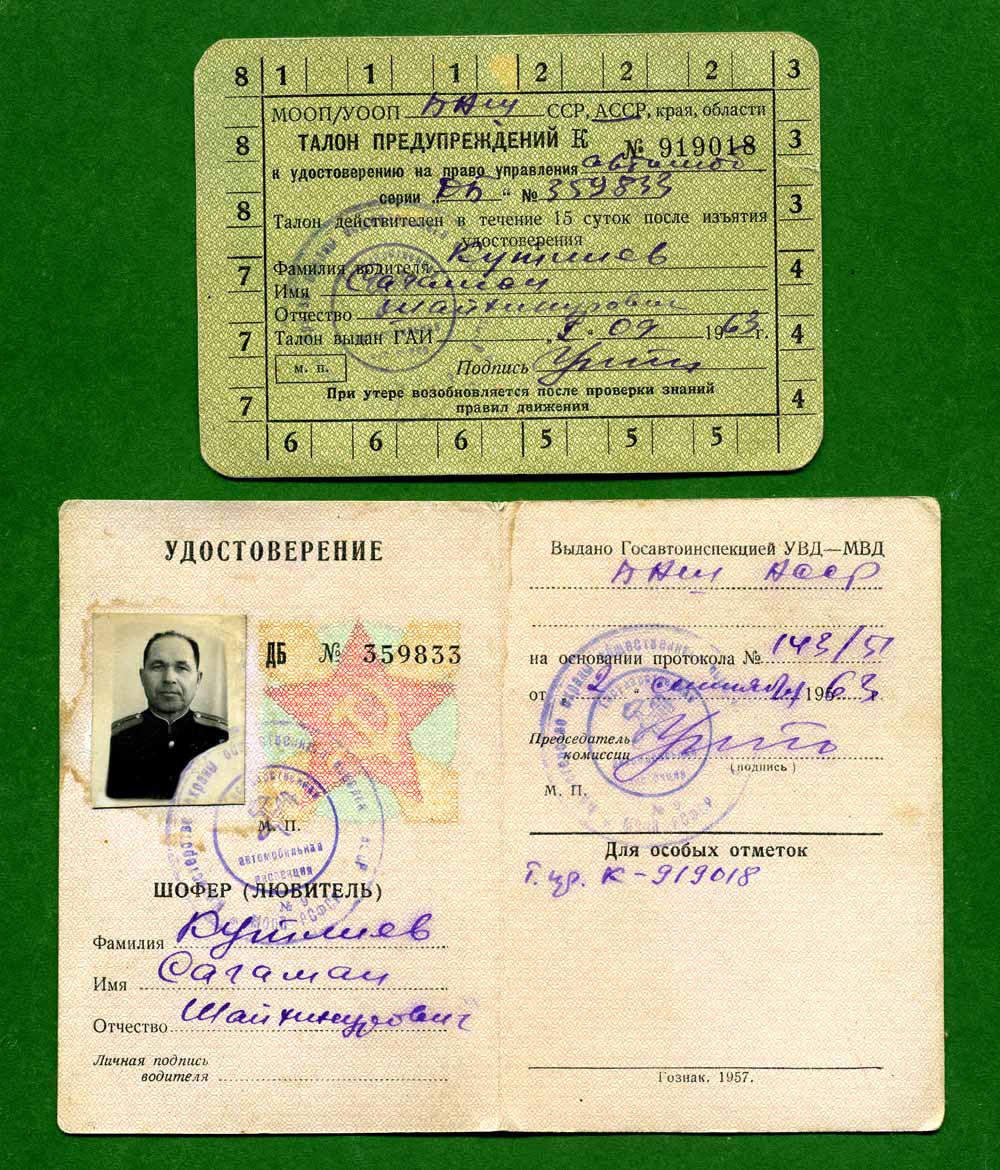 8 1 1 1 2 2 2 3
МООП/УООП Баш ССР, АССР, края, области
8 ТАЛОН ПРЕДУПРЕЖДЕНИЙ К № 919018 3
к удостоверению на право управления автомоб
серии „ДБ“ № 359833
8 Талон действителен в течение 15 суток после изъятия 3
удостоверения
Фамилия водителя Кутлиев
7 Имя Сагаман 4
Отчество Шайхинурович
7 Талон выдан ГАИ „ “ 09 1963 г. 4
м. п. Подпись
При утере возобновляется после проверки знаний
7 правил движения 4
6 6 6 5 5 5
УДОСТОВЕРЕНИЕ
ДБ № 359833
М. П.
автомобильная
инспекция
№ 9
МООП РСФСР
ШОФЕР (ЛЮБИТЕЛЬ)
Фамилия Кутлиев
Имя Сагаман
Отчество Шайхинурович
Личная подпись
водителя
Выдано Госавтоинспекцией УВД—МВД
Баш АССР
на основании протокола № 143/51
от „2“ сентября 1963
Председатель
комиссии
(подпись)
М. П.
№ 9
МООП РСФСР
Для особых отметок
Т. пр. К-919018
Гознак. 1957.